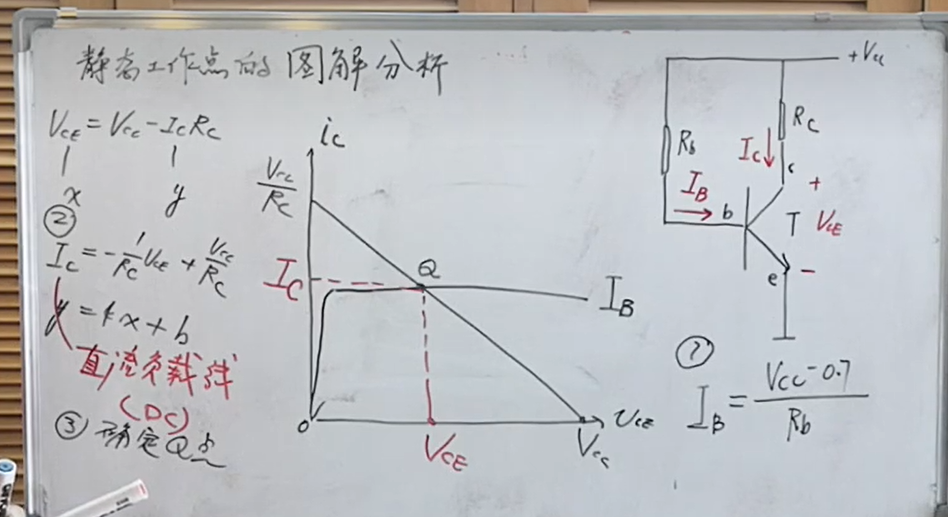 静态工作点的图解分析
V_CE = V_CC - I_C R_C
x y
②
I_C = -1/R_C V_CE + V_CC/R_C
y = kx + b
直流负载线
(DC)
③ 确定Q点
i_C
V_CC/R_C
I_C
Q
I_B
0
V_CE
V_CC
u_CE
+V_CC
R_b
R_C
I_C
c
I_B
b
T
+
V_CE
-
e
①
I_B = (V_CC - 0.7)/R_b